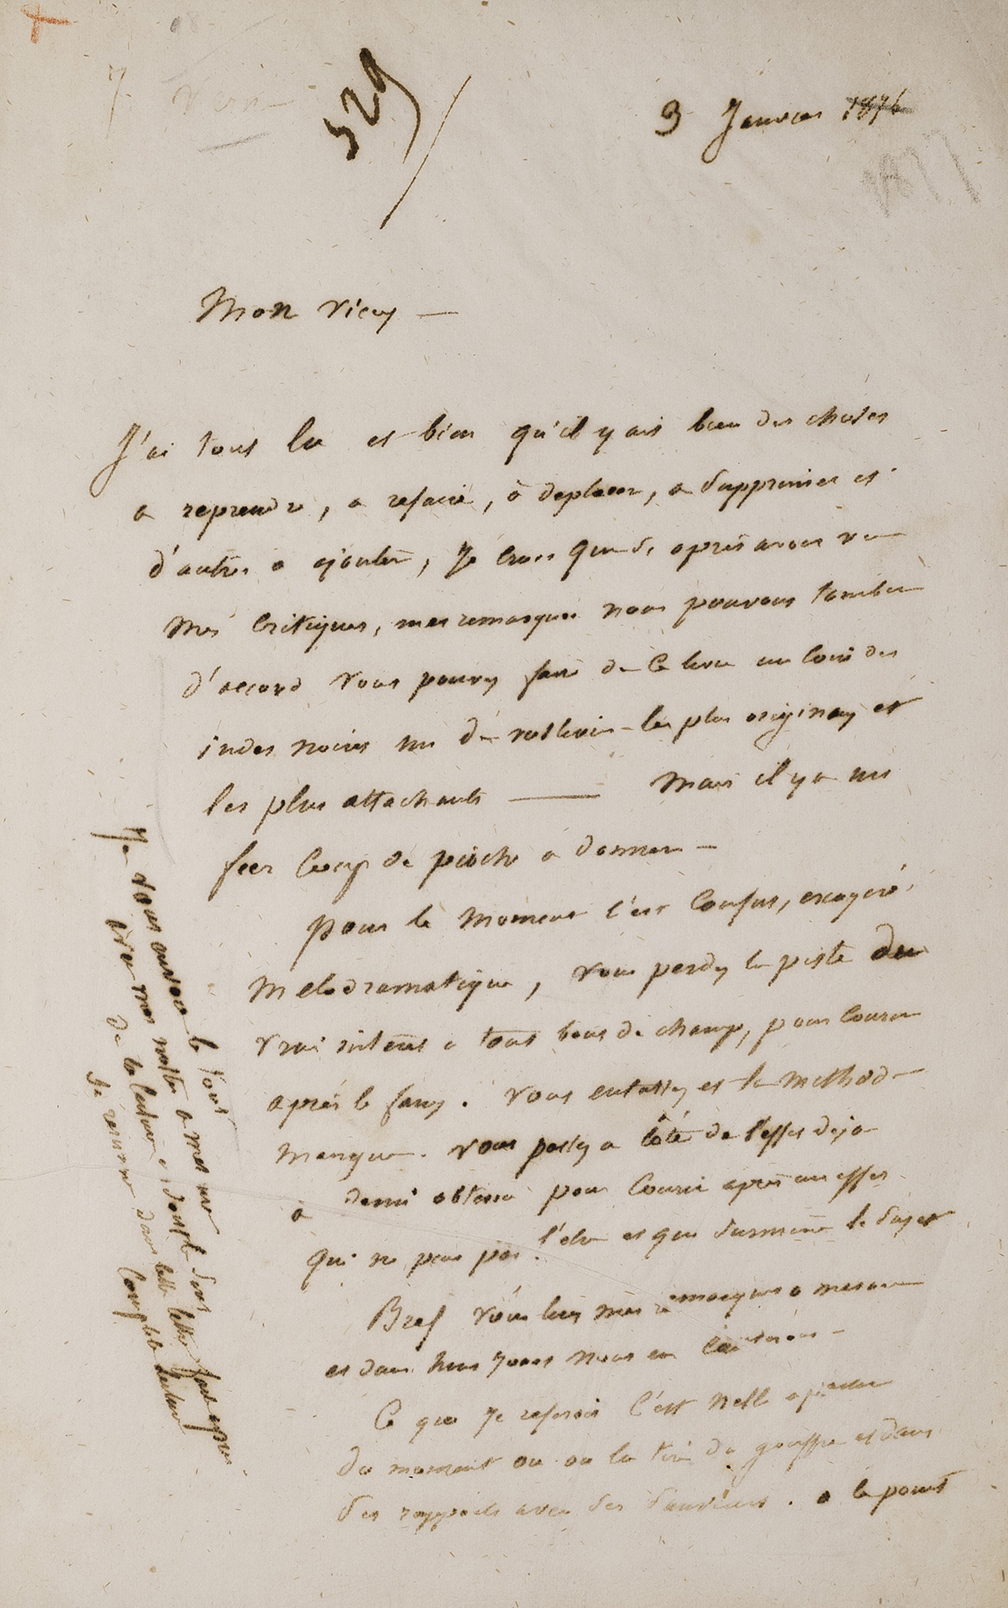 529
3 Janvier 1876
Mon vieux —
J'ai tout lu et bien qu'il y ait bien des choses
a reprendre, a refaire, à deplacer, a supprimer et
d'autres a ajouter, Je crois que si, après avoir vu
mes critiques, mes remarques nous pouvons tomber
d'accord vous pouvez faire de ce livre un coin des
indes noires un de vos livres les plus originaux et
les plus attachants — Mais il y a un
fier coup de pioche a donner —
Pour le moment c'est confus, exagéré
melodramatique, vous perdez la piste du
vrai intérêt a tous bouts de champ, pour courir
après le faux. Vous entassez et la methode
manque. vous passez a côté de l'effet deja
a demi obtenu pour courir après un effet
qui ne peut pas l'etre et qui surmène le sujet
Bref vous lirez mes remarques a mesure
et dans huit jours nous en causerons —
Ce que je referais c'est Nell a partir
du moment ou on la tire du gouffre et dans
ses rapports avec ses sauveurs. a le point
Je vous envoie le tout
avec mes notes a mesure
de la lecture et
Je resume dans cette lettre
complete lecture